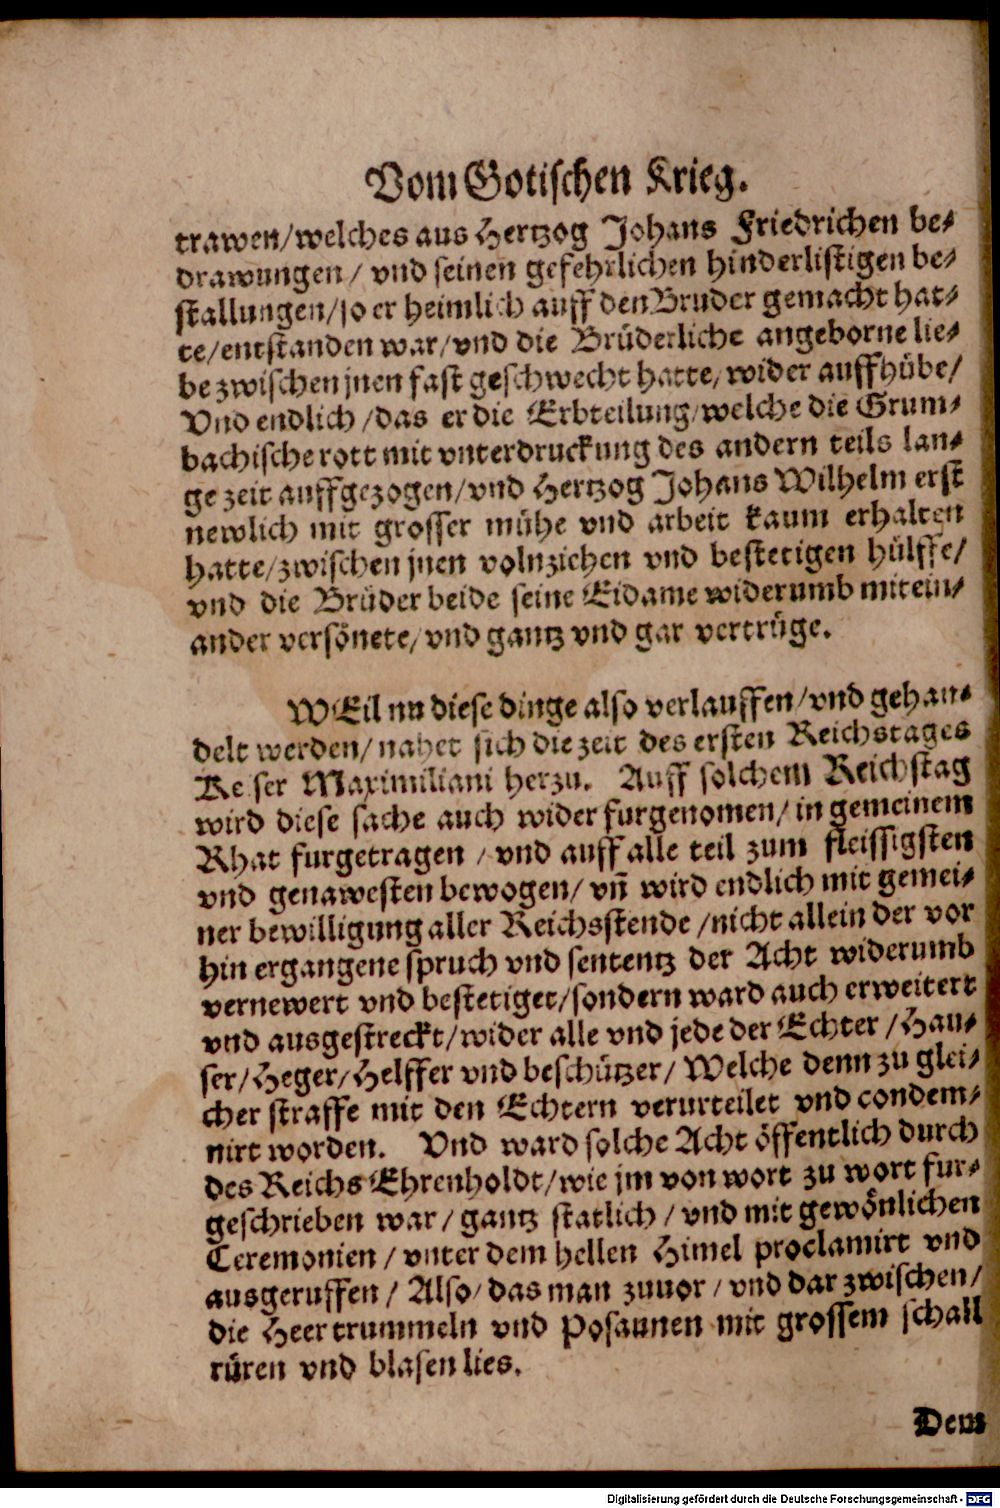 Vom Gotischen Krieg.
trawen/welches aus Hertzog Johans Friedrichen be-
drawungen/ vnd seinen gefehrlichen hinderlistigen be-
stallungen/so er heimlich auff den Bruder gemacht hat-
te/entstanden war/vnd die Brüderliche angeborne lie-
be zwischen jnen fast geschwecht hatte/wider auffhübe/
Vnd endlich/das er die Erbteilung/welche die Grum-
bachische rott mit vnterdruckung des andern teils lan-
ge zeit auffgezogen/vnd Hertzog Johans Wilhelm erst
newlich mit grosser mühe vnd arbeit kaum erhalten
hatte/zwischen jnen volnziehen vnd bestetigen hülffe/
vnd die Brüder beide seine Eidame widerumb mitein-
ander versönete/vnd gantz vnd gar vertrüge.
WEil nu diese dinge also verlauffen/vnd gehan-
delt werden/nahet sich die zeit des ersten Reichstages
Keiser Maximiliani herzu. Auff solchem Reichstag
wird diese sache auch wider furgenomen/in gemeinem
Rhat furgetragen/vnd auff alle teil zum fleissigsten
vnd genawesten bewogen/vñ wird endlich mit gemei-
ner bewilligung aller Reichsstende/nicht allein der vor
hin ergangene spruch vnd sententz der Acht widerumb
vernewert vnd bestetiget/sondern ward auch erweitert
vnd ausgestreckt/wider alle vnd jede der Echter/Hau-
ser/Heger/Helffer vnd beschützer/Welche denn zu glei-
cher straffe mit den Echtern verurteilet vnd condem-
nirt worden. Vnd ward solche Acht öffentlich durch
des Reichs Ehrenholdt/wie jm von wort zu wort fur-
geschrieben war/gantz statlich/vnd mit gewönlichen
Ceremonien/vnter dem hellen Himel proclamirt vnd
ausgeruffen/Also/das man zuuor/vnd dar zwischen/
die Heertrummeln vnd Posaunen mit grossem schall
rüren vnd blasen lies.
Dem
Digitalisierung gefördert durch die Deutsche Forschungsgemeinschaft - DFG